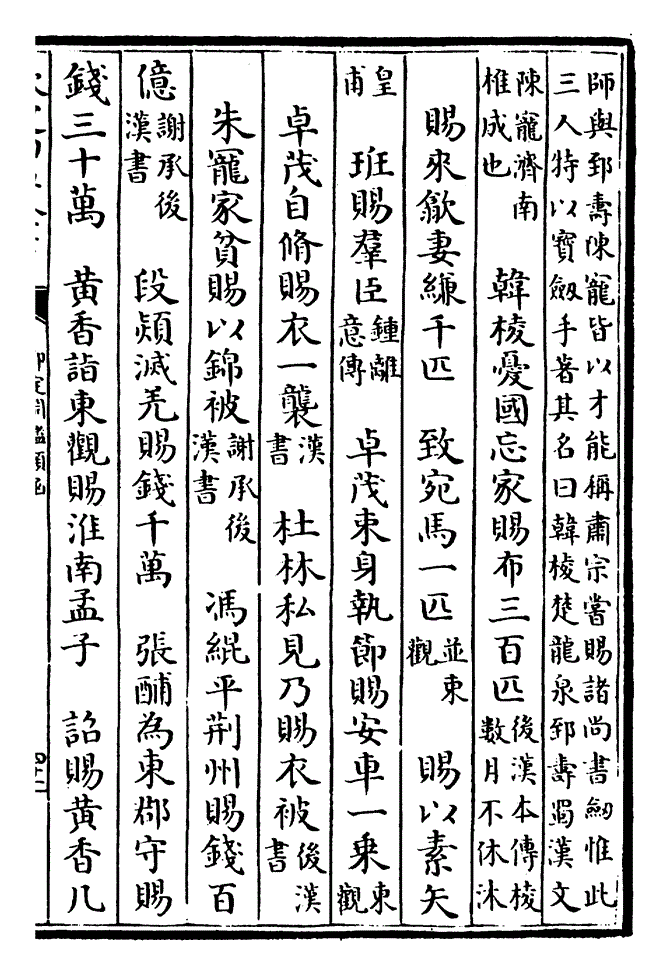 師與郅壽陳寵皆以才能稱肅宗嘗賜諸尚書劒惟此
三人特以寶劒手署其名曰韓棱楚龍泉郅壽蜀漢文
陳寵濟南椎成也 韓棱憂國忘家賜布三百匹後漢本傳棱數月不休沐
賜來歙妻縑千匹 致宛馬一匹並東觀 賜以素矢
皇甫 班賜羣臣鍾離意傳 卓茂束身執節賜安車一乗東觀
卓茂自脩賜衣一襲漢書 杜林私見乃賜衣被後漢書
朱寵家貧賜以錦被謝承後漢書 馮緄平荆州賜錢百
億謝承後漢書 段熲滅羌賜錢千萬 張酺為東郡守賜
錢三十萬 黄香詣東觀賜淮南孟子 詔賜黄香几